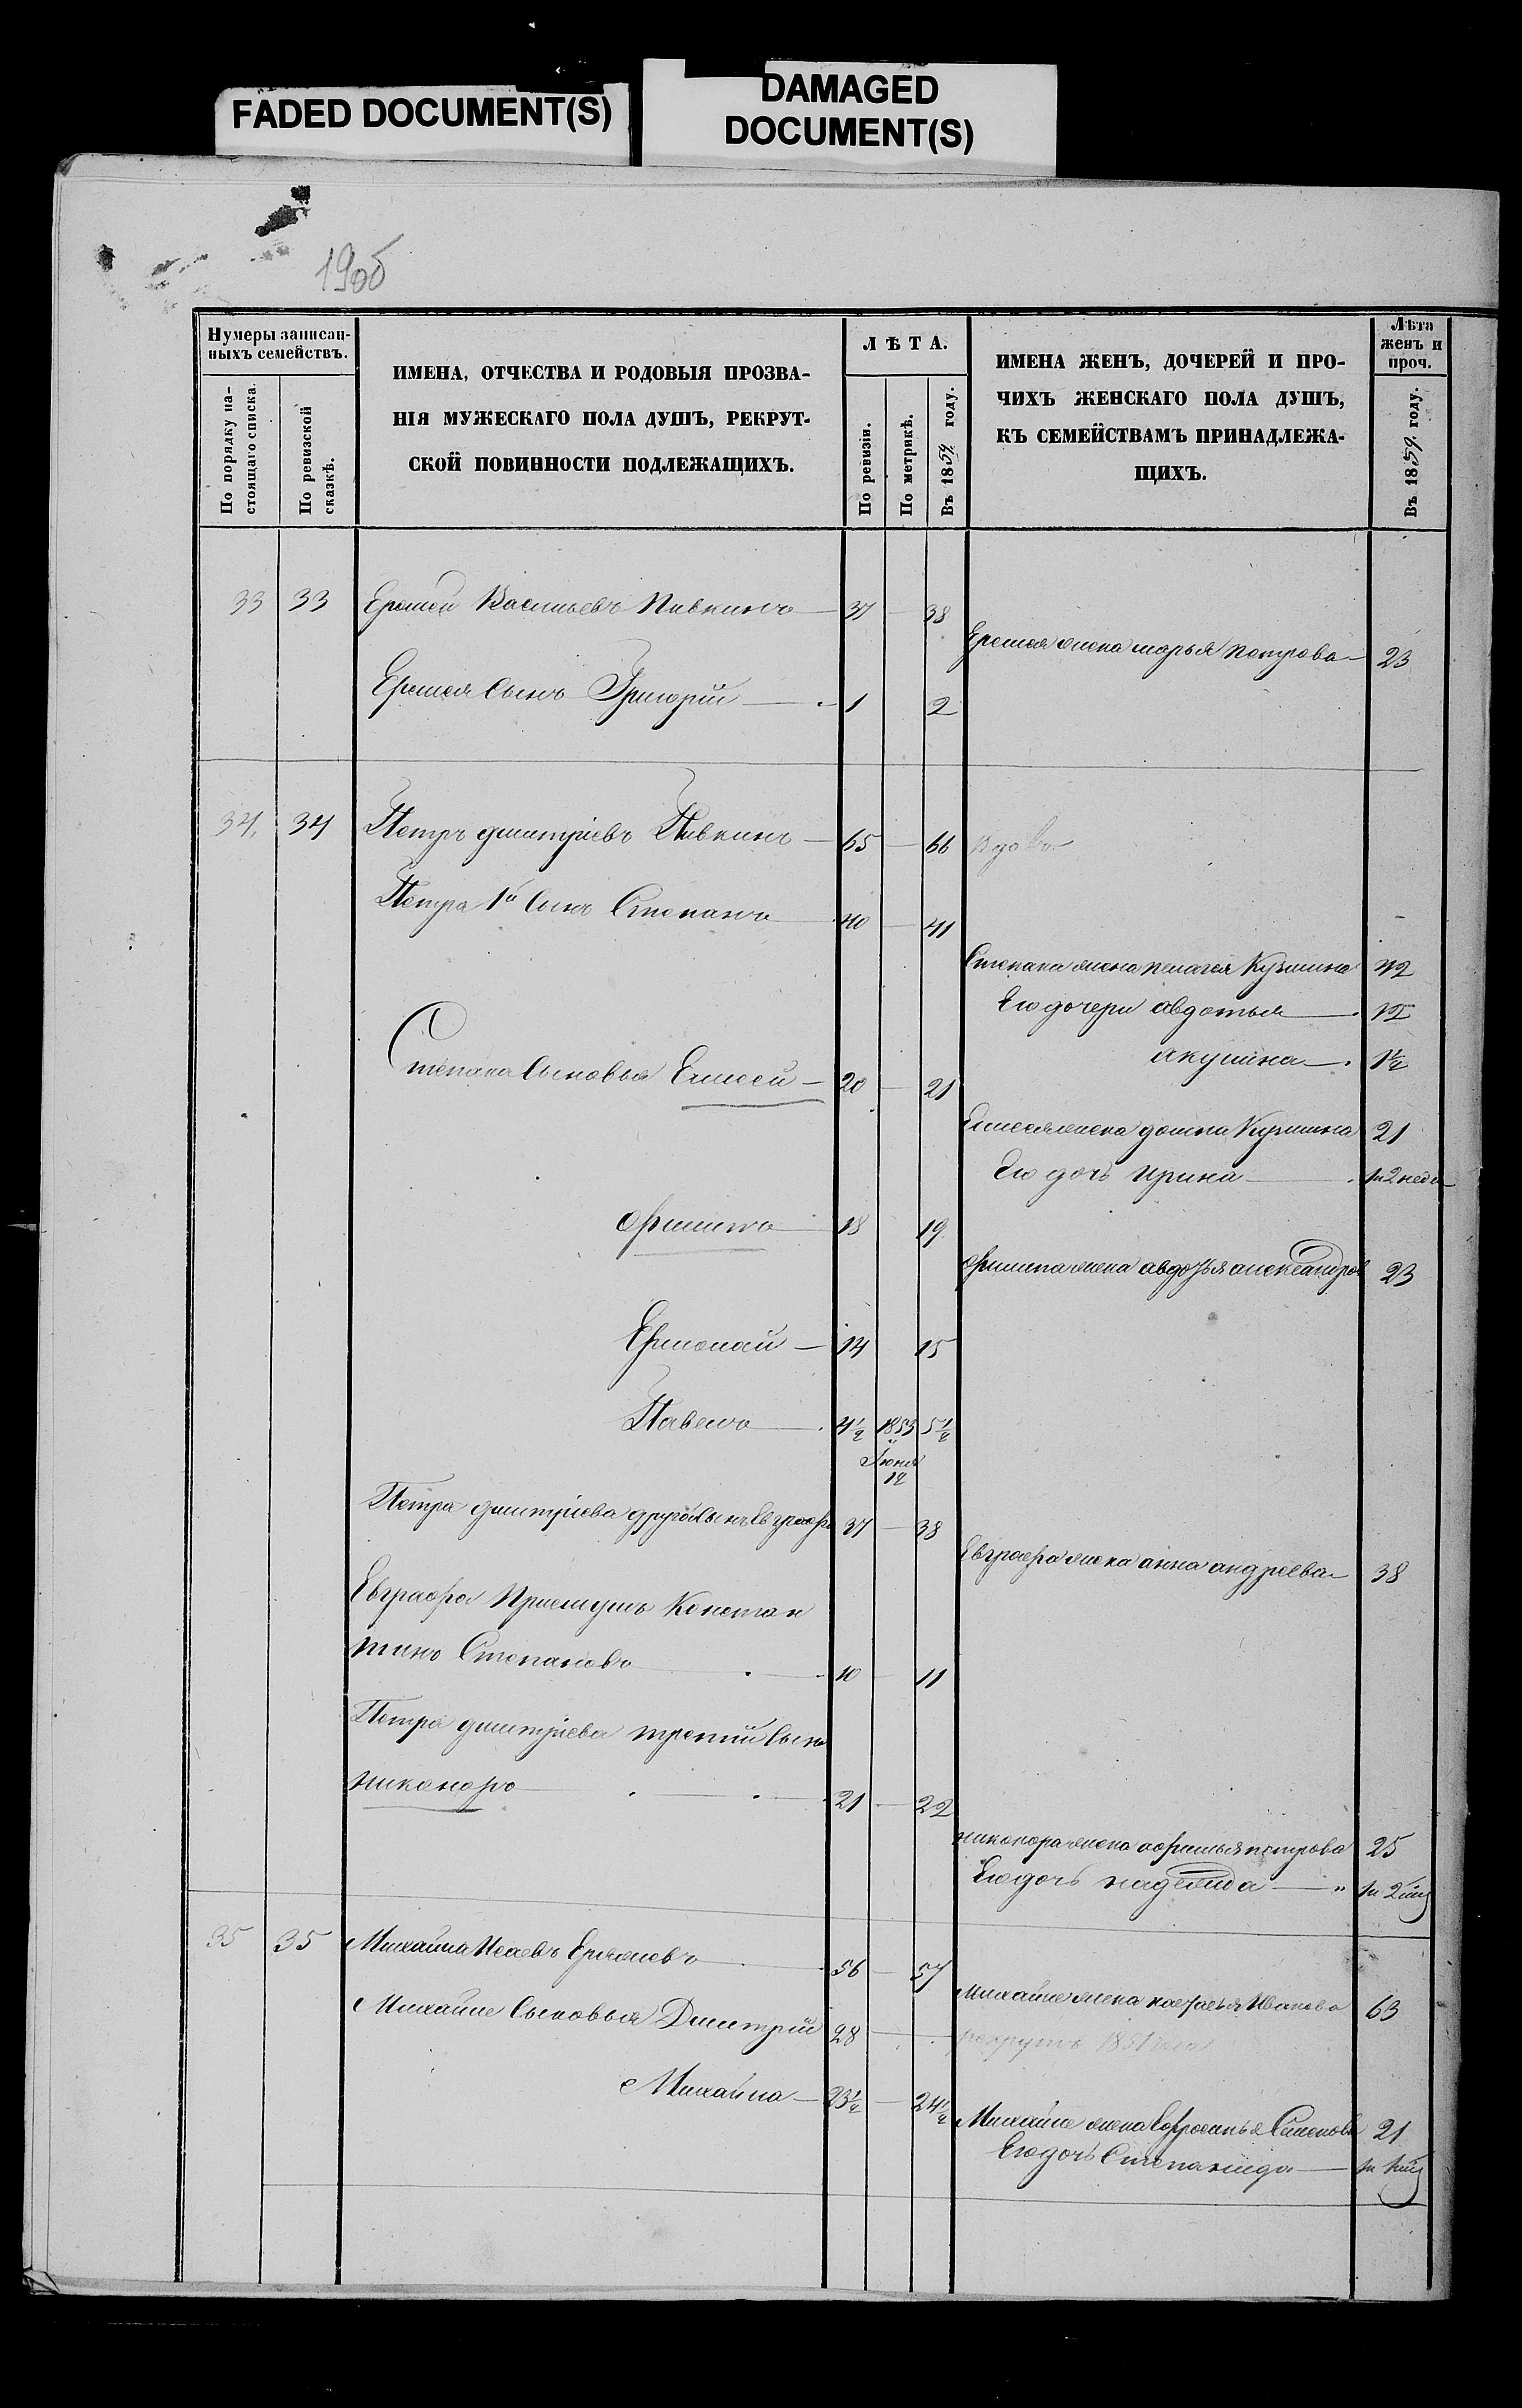 FADED DOCUMENT(S)
DAMAGED
DOCUMENT(S)
190об
Нумеры записан-
ныхъ семействъ.
По порядку на-
стоящаго списка.
По ревизской
сказкѣ.
ИМЕНА, ОТЧЕСТВА И РОДОВЫЯ ПРОЗВА-
НІЯ МУЖЕСКАГО ПОЛА ДУШЪ, РЕКРУТ-
СКОЙ ПОВИННОСТИ ПОДЛЕЖАЩИХЪ.
ЛѢТА.
По ревизіи.
По метрикѣ.
Въ 1859 году.
ИМЕНА ЖЕНЪ, ДОЧЕРЕЙ И ПРО-
ЧИХЪ ЖЕНСКАГО ПОЛА ДУШЪ,
КЪ СЕМЕЙСТВАМЪ ПРИНАДЛЕЖА-
ЩИХЪ.
Лѣта
женъ и
проч.
Въ 1859 году.
33 33 Еремей Васильевъ Пивкинъ 37 38
Еремея жена марья петрова 23
Еремея Сынъ Григорій 1 2
34. 34 Петръ дмитріевъ Пивкинъ 65 66 вдовъ
Петра 1й Сынъ Степанъ 40 41
Степана жена пелагея Кузмина 42
Ею дочери авдотья 12
акулина 1 1/2
Степана Сыновья Елисей 20 21
Елисея жена домна Кузмина 21
Ею дочь ирина 2 неде
филипъ 18 19
филипа жена авдотья александров 23
Ермолай 14 15
Павелъ 4 1/2 1853 5 1/2
Июня
12
Петра дмитріева другой Сынъ Евграфъ 37 38
Евграфа жена анна андреева 38
Евграфа Приемушъ Констан
тинъ Степановъ 10 11
Петра дмитріева третій Сынъ
никаноръ 21 22
никонора жена афимья петрова 25
Ею дочь надежда
35 35 Михайла Исаевъ Ермолаевъ 56 57
Михайлы жена настасья Иванова 63
Михайлы Сыновья Дмитрій 28 рекрутъ
Михайла 23 1/2 24 1/2
Михайлы жена Ефросинья Семенова 21
Ею дочь Степанида